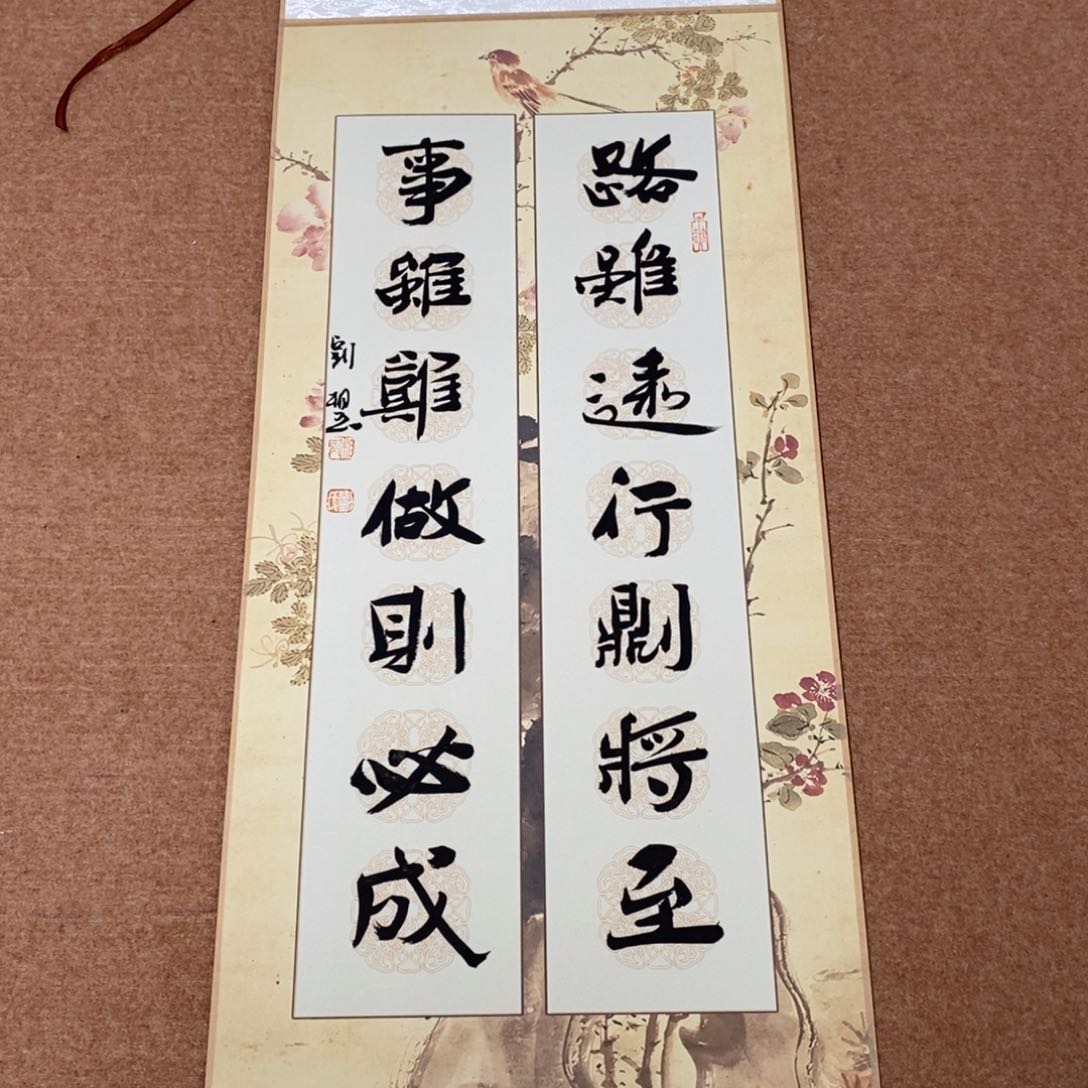 路雖遠行則將至
事雖難做則必成
劉